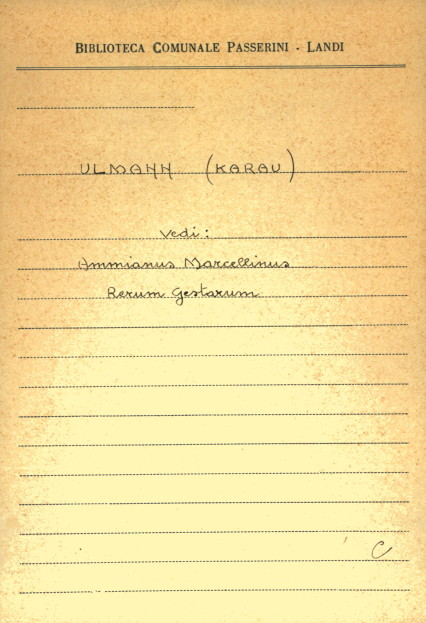 BIBLIOTECA COMUNALE PASSERINI - LANDI
ULMANN (KARAU)
Vedi:
Ammianus Marcellinus
Rerum Gestarum
C